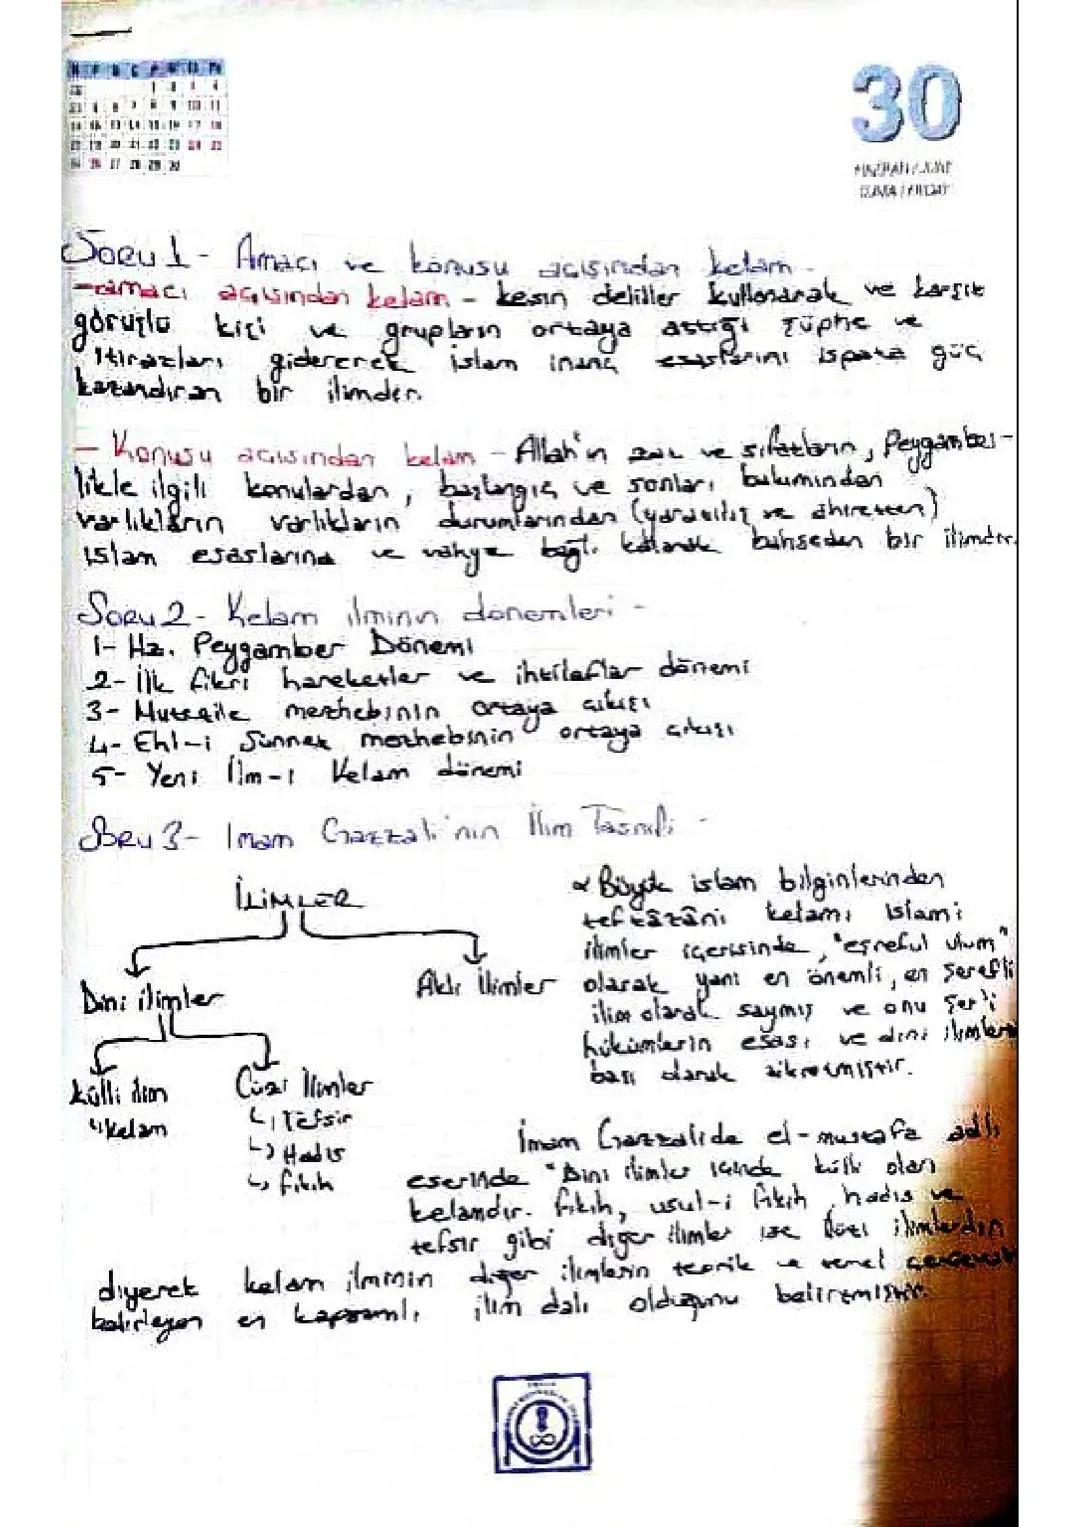 30
HAZİRAN / JUNE
CUMA / FRIDAY
Soru 1- Amacı ve konusu açısından kelam -
- amacı açısından kelam - kesin deliller kullanarak ve karşıt
görüşlü kişi ve grupların ortaya attığı şüphe ve
itirazları gidererek islam inanç esaslarını ispata güç
kazandıran bir ilimdir.
- Konusu açısından kelam - Allah'ın zat ve sıfatların, Peygamber-
likle ilgili konulardan, başlangıç ve sonları bulumından
varlıkların varlıkların durumlarından (yaratılış ve ahiretten)
islam esaslarına ve vahye bağlı kalarak bahseden bir ilimdir.
Soru 2- Kelam ilminin dönemleri -
1- Hz. Peygamber Dönemi
2- İlk fikri hareketler ve ihtilaflar dönemi
3- Mutezile mezhebinin ortaya çıkışı
4- Ehl-i Sünnet mezhebinin ortaya çıkışı
5- Yeni İlm-i Kelam dönemi
Soru 3- Imam Gazzali'nin İlim Tasnifi -
İLİMLER
Dini ilimler
Akli İlimler
külli ilim
kelam
Cüzi İlimler
Tefsir
Hadis
fıkıh
Büyük islam bilginlerinden
teftâzâni kelamı islami
ilimler içerisinde, "eşreful ulum"
olarak yani en önemli, en şerefli
ilim olarak saymış ve onu şer'i
hükümlerin esası ve dini ilimlerin
başı olarak zikretmiştir.
İmam Gazzalide el-mustafa adlı
eserinde "Dini ilimler içinde külli olan
kelamdır. fıkıh, usul-i fıkıh, hadis ve
tefsir gibi diğer ilimler ise cüzi ilimlerdir
diyerek kelam ilminin diğer ilimlerin teorik ve temel
belirleyen en kapsamlı ilim dalı olduğunu belirtmiştir.